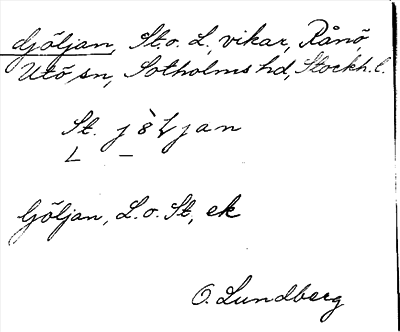 Göljan, St. o. L., vikar, Rånö,
Utö sn, Sotholms hd, Stockh. l.
St. jan
L –
Göljan, L. o. St, ek
O. Lundberg